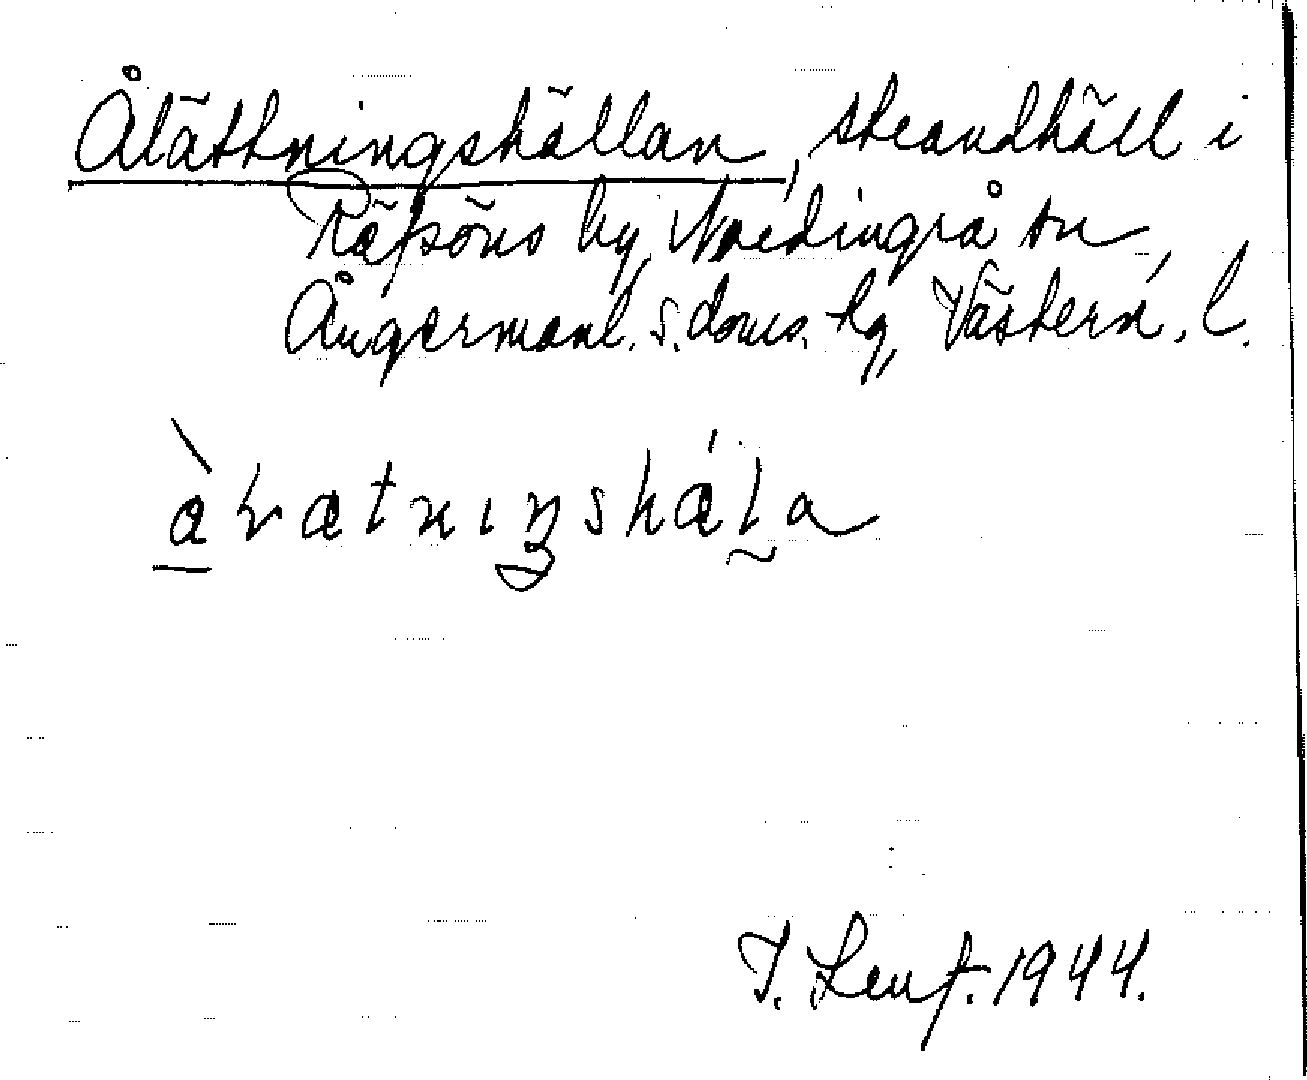 Ålättningshällan, strandhäll i
Räfsöns by, Nordingrå sn,
Ångermanl. s. doms. tg, Västern. l.
àlratnıŋshála
T. Lenf. 1944.